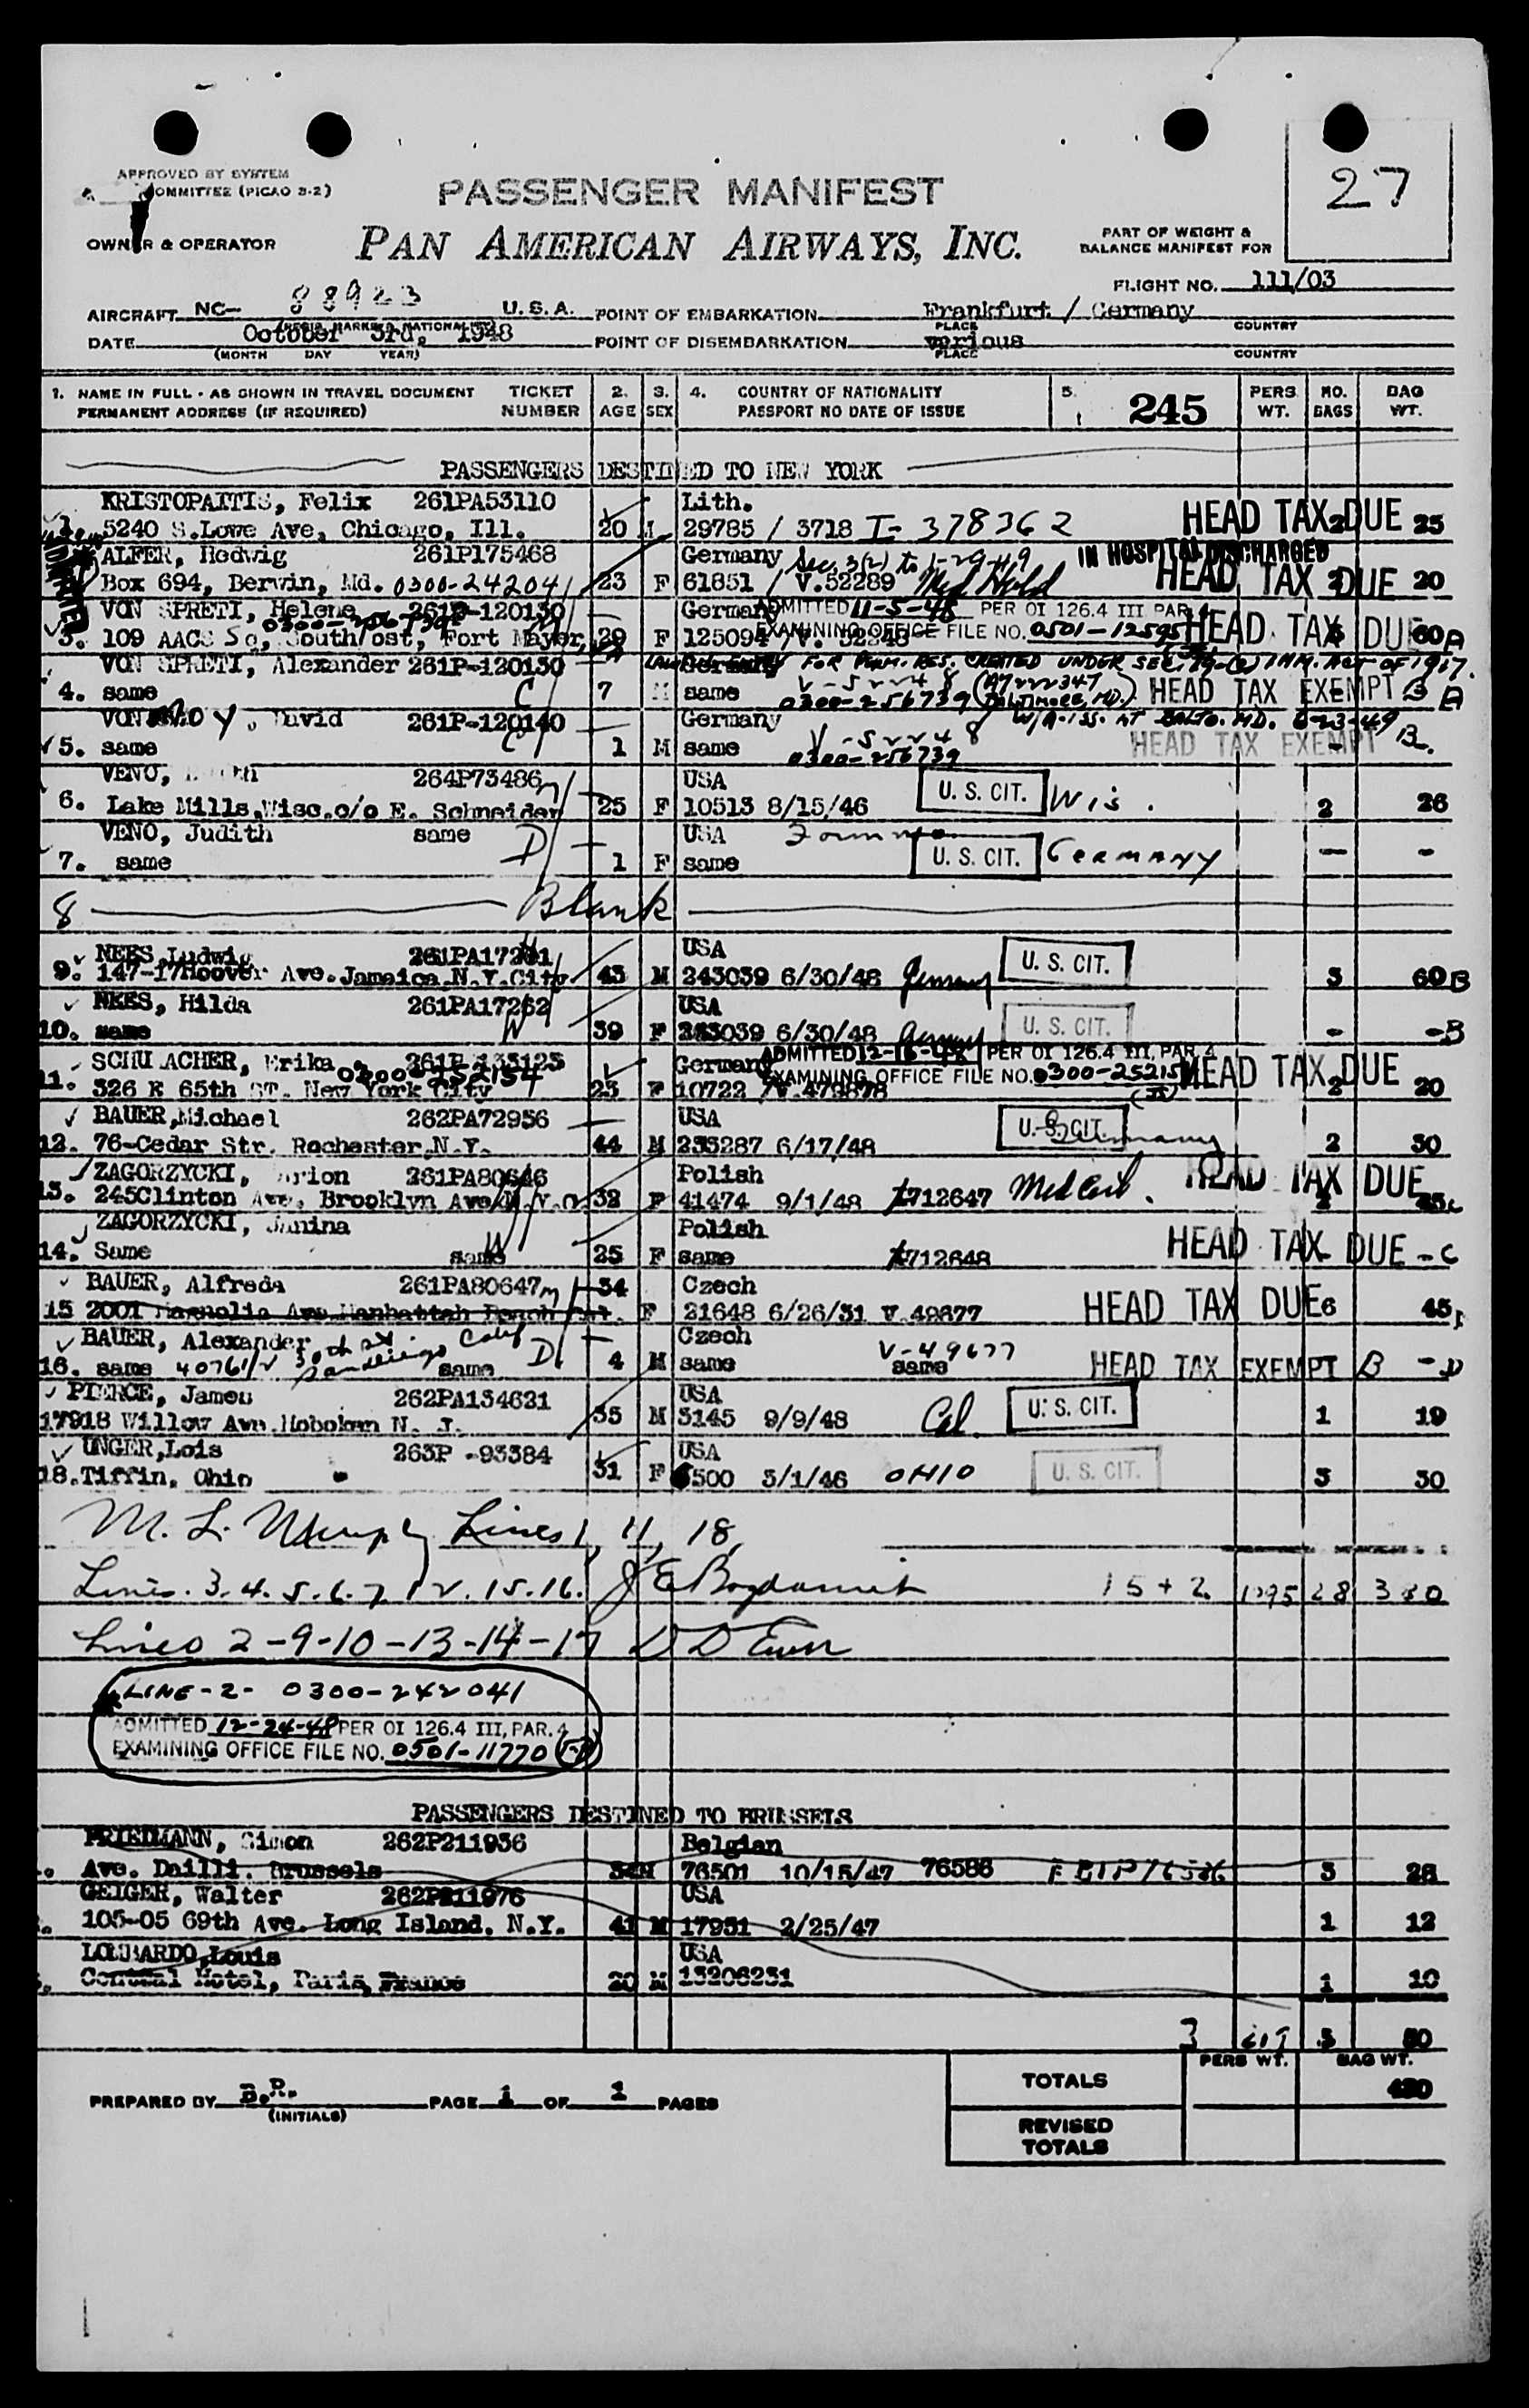 APPROVED BY SYSTEM
COMMITTEE (PICAO 3-2)
PASSENGER MANIFEST
27
OWNER & OPERATOR
PAN AMERICAN AIRWAYS, INC.
PART OF WEIGHT &
BALANCE MANIFEST FOR
FLIGHT NO. 111/03
AIRCRAFT NC- 88923 U.S.A. POINT OF EMBARKATION Frankfurt / Germany
PLACE COUNTRY
DATE October 3rd, 1948 POINT OF DISEMBARKATION various
(MONTH DAY YEAR) PLACE COUNTRY
1. NAME IN FULL - AS SHOWN IN TRAVEL DOCUMENT TICKET 2. 3. 4. COUNTRY OF NATIONALITY 5. 245 PERS. NO. BAG
PERMANENT ADDRESS (IF REQUIRED) NUMBER AGE SEX PASSPORT NO DATE OF ISSUE WT. BAGS WT.
PASSENGERS DESTINED TO NEW YORK
KRISTOPAITIS, Felix 261PA53110 Lith.
5240 S.Lowe Ave, Chicago, Ill. 20 M 29785 / 3718 I-378362 HEAD TAX DUE 2 25
ALFER, Hedwig 261P175468 Germany Sec. 3(2) to 1-29-49 IN HOSPITAL DISCHARGED
Box 694, Berwin, Md. 0300-242041 23 F 61851 / V.52289 Med Hold HEAD TAX DUE 20
VON SPRETI, Helene 261P-120130 Germany ADMITTED 11-5-48 PER OI 126.4 III PAR. 4
3. 109 AACS Sq, South/ost, Fort Mayer, 29 F 125094 / V. 52248 EXAMINING OFFICE FILE NO. 0501-12595 HEAD TAX DUE 60 A
VON SPRETI, Alexander 261P-120130 Germany LAWFUL ENTRY FOR PERM. RES. CREATED UNDER SEC. 19-(c) IMM. ACT OF 1917.
4. same C 7 M same V-52248 0300-256739 (A7222347 BALTIMORE, MD.) HEAD TAX EXEMPT B A
VON ROY, David 261P-120140 Germany W/A-ISS. AT BALTO. MD. 6-23-49
5. same C 1 M same V-52248 0300-256739 HEAD TAX EXEMPT B.
VENO, 264P73486 USA
6. Lake Mills,Wisc.c/o E. Schneider 25 F 10513 8/15/46 U. S. CIT. Wis. 2 26
VENO, Judith same USA
7. same D 1 F same U. S. CIT. GERMANY - -
8 Blank
NEES,Ludwig 261PA17261 USA
9. 147-17Hoover Ave.Jamaica.N.Y.City. 43 M 243039 6/30/48 Germany U. S. CIT. 3 60 B
NEES, Hilda 261PA17262 USA
10. same W 39 F 243039 6/30/48 Germany U. S. CIT. - -B
SCHUMACHER, Erika 261P 133123 Germany ADMITTED 12-16-48 PER OI 126.4 III, PAR. 4
11. 326 E 65th ST. New York City 0300-252154 23 F 10722 /V.479878 EXAMINING OFFICE FILE NO. 0300-252154 HEAD TAX DUE 2 20
BAUER,Michael 262PA72956 USA
12. 76-Cedar Str. Rochester,N.Y. 44 M 235287 6/17/48 U. S. CIT. Germany 2 30
ZAGORZYCKI, Marion 261PA80646 Polish
13. 245Clinton Ave. Brooklyn Ave/N.Y.C. 32 F 41474 9/1/48 I712647 Med Cert. HEAD TAX DUE 45 C
ZAGORZYCKI, Janina Polish
14. Same same W 25 F same I712648 HEAD TAX DUE - C
BAUER, Alfreda 261PA80647 34 Czech
15 2001 Magnolia Ave.Manhattan Beach Cal. F 21648 6/26/31 V.49677 HEAD TAX DUE 6 45
BAUER, Alexander Czech
16. same 4076 1/2 30th St Sandiego Calif same D 4 M same same V-49677 HEAD TAX EXEMPT B - D
PIERCE, James 262PA134621 USA
17918 Willow Ave.Hoboken N. J. 35 M 3145 9/9/48 Cal. U. S. CIT. 1 19
UNGER,Lois 263P -93384 USA
18.Tiffin, Ohio 31 F 6500 3/1/46 OHIO U. S. CIT. 3 30
M. L. Murphy Lines 1, 11, 18,
Lines. 3.4.5.6.7.12.15.16. J E 15 + 2 28 380
Lines 2-9-10-13-14-17 D D
LINE-2- 0300-242041
ADMITTED 12-24-48 PER OI 126.4 III, PAR. 4
EXAMINING OFFICE FILE NO. 0501-11770
PASSENGERS DESTINED TO BRUSSELS
FRIEDMANN, Simon 262P211936 Belgian
Ave. Dailli. Brussels 34 M 76501 10/15/47 76586 3 28
GEIGER, Walter 262P211976 USA
105-05 69th Ave. Long Island. N.Y. 41 M 17951 2/25/47 1 12
LOMBARDO,Louis USA
Central Hotel, Paris, France 20 M 13206231 1 10
3 5 50
PERS WT. BAG WT.
TOTALS 430
PREPARED BY B.R. PAGE 1 OF 1 PAGES
(INITIALS)
REVISED
TOTALS